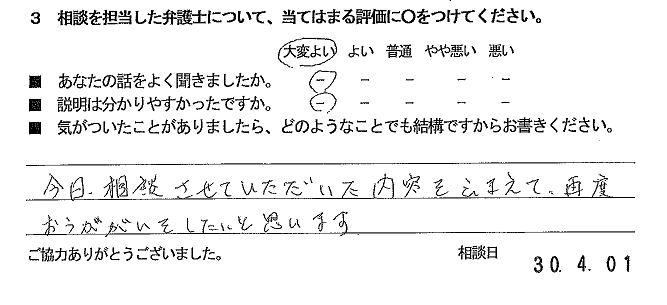 3 相談を担当した弁護士について、当てはまる評価に〇をつけてください。
大変よい よい 普通 やや悪い 悪い
■ あなたの話をよく聞きましたか。 − − − − −
■ 説明は分かりやすかったですか。 − − − − −
■ 気がついたことがありましたら、どのようなことでも結構ですからお書きください。
今日、相談させていただいた内容をふまえて、再度
おうかがいをしたいと思います
ご協力ありがとうございました。 相談日 30.4.01